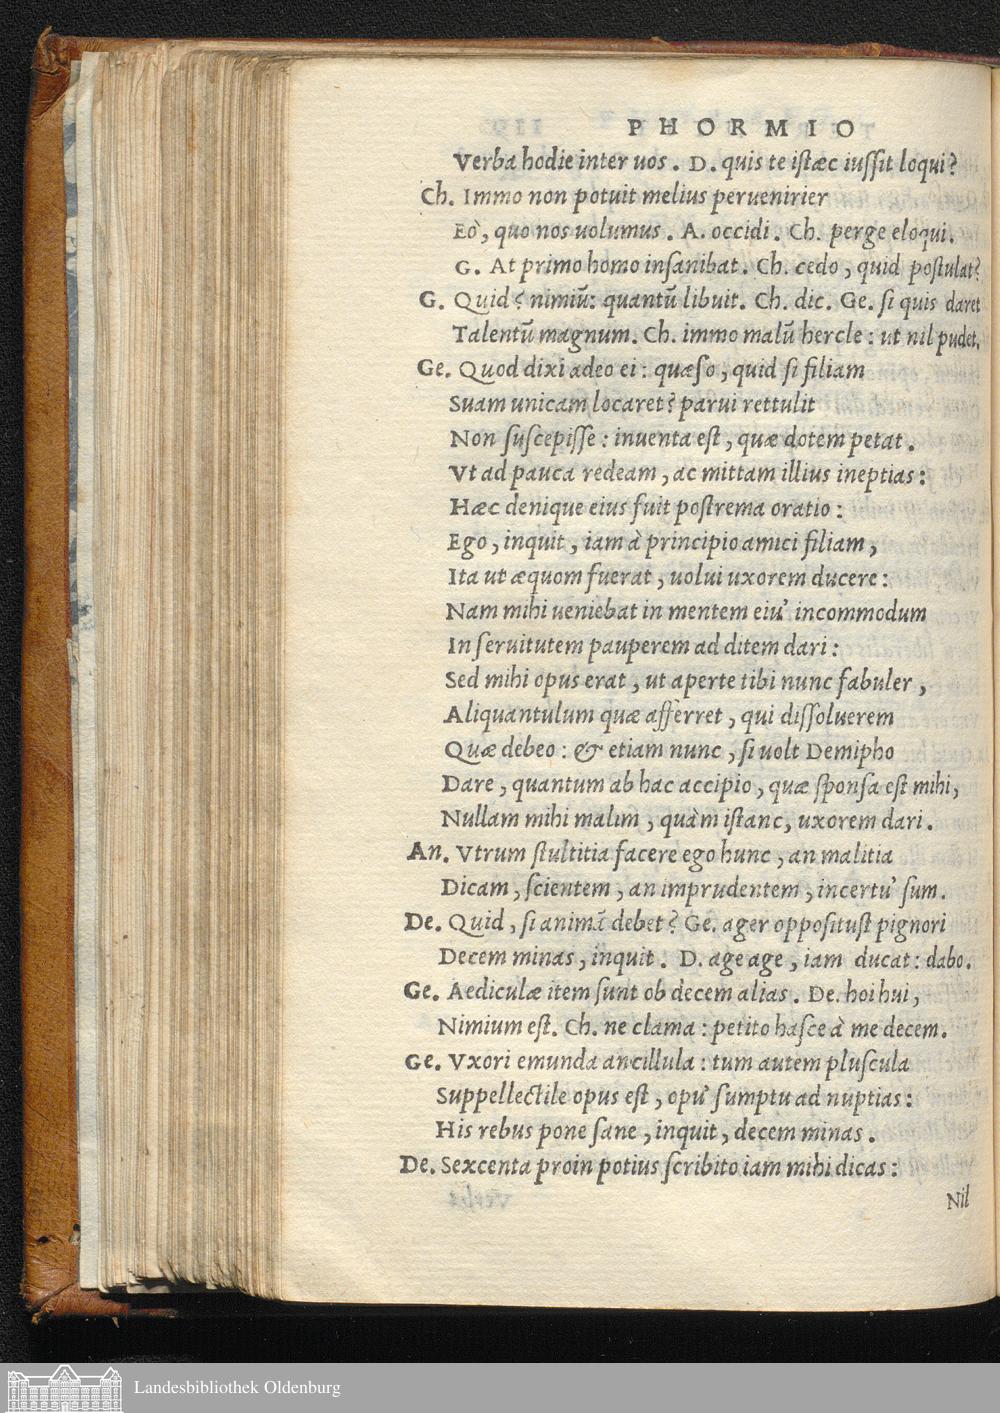 PHORMIO
Verba hodie inter uos. D. quis te istæc iussit loqui?
Ch. Immo non potuit melius peruenirier
Eò, quo nos uolumus. A. occidi. Ch. perge eloqui.
G. At primo homo insanibat. Ch. cedo, quid postulat?
G. Quid? nimiū: quantū libuit. Ch. dic. Ge. si quis daret
Talentū magnum. Ch. immo malū hercle: ut nil pudet.
Ge. Quod dixi adeo ei: quæso, quid si filiam
Suam unicam locaret? parui rettulit
Non suscepisse: inuenta est, quæ dotem petat.
Vt ad pauca redeam, ac mittam illius ineptias:
Hæc denique eius fuit postrema oratio:
Ego, inquit, iam à principio amici filiam,
Ita ut æquom fuerat, uolui uxorem ducere:
Nam mihi ueniebat in mentem eiu' incommodum
In seruitutem pauperem ad ditem dari:
Sed mihi opus erat, ut aperte tibi nunc fabuler,
Aliquantulum quæ afferret, qui dissoluerem
Quæ debeo: & etiam nunc, si uolt Demipho
Dare, quantum ab hac accipio, quæ sponsa est mihi,
Nullam mihi malim, quàm istanc, uxorem dari.
An. Vtrum stultitia facere ego hunc, an malitia
Dicam, scientem, an imprudentem, incertu' sum.
De. Quid, si animā debet? Ge. ager oppositust pignori
Decem minas, inquit. D. age age, iam ducat: dabo.
Ge. Aediculæ item sunt ob decem alias. De. hoi hui,
Nimium est. Ch. ne clama: petito hasce à me decem.
Ge. Vxori emunda ancillula: tum autem pluscula
Suppellectile opus est, opu' sumptu ad nuptias:
His rebus pone sane, inquit, decem minas.
De. Sexcenta proin potius scribito iam mihi dicas:
Nil
Landesbibliothek Oldenburg